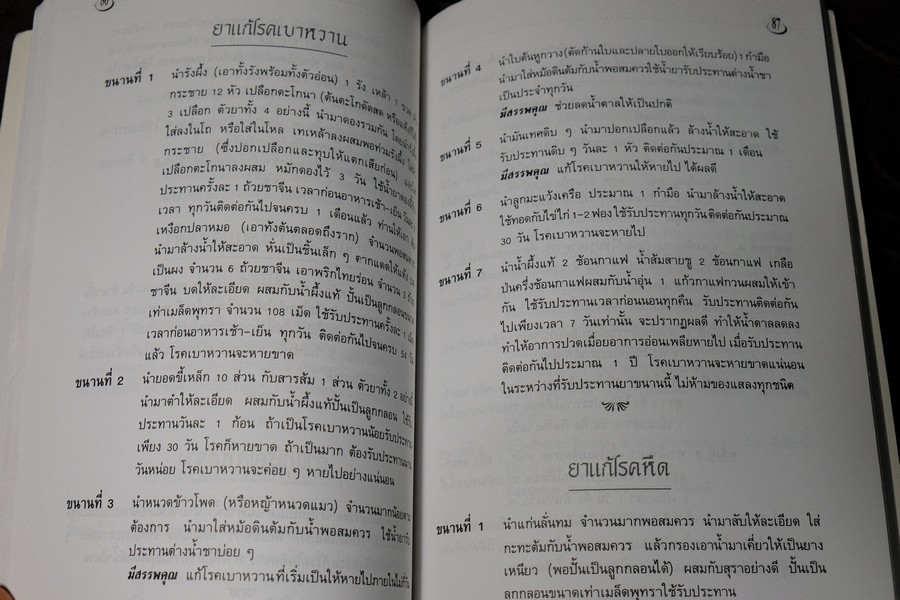 ยาแก้โรคเบาหวาน
ขนานที่ 1 นำรังผึ้ง (เอาทั้งรังพร้อมทั้งตัวอ่อน) 1 รัง เหล้า 1 ขวด
กระชาย 12 หัว เปลือกตะโกนา (ต้นตะโกดัดสด
3 เปลือก ตัวยาทั้ง 4 อย่างนี้ นำมาดองรวมกัน
ใส่ลงในโถ หรือใส่ในโหล เทเหล้าลงผสมพอท่วมรังผึ้ง
กระชาย (ซึ่งปอกเปลือกและทุบให้แตกเสียก่อน)
เปลือกตะโกนาลงผสม หมักดองไว้ 3 วัน ใช้น้ำยาดอง
ประทานครั้งละ 1 ถ้วยชาจีน เวลาก่อนอาหารเช้า-เย็น
เวลา ทุกวันติดต่อกันไปจนครบ 1 เดือนแล้ว ท่านให้เอา
เหงือกปลาหมอ (เอาทั้งต้นตลอดถึงราก) จำนวนพอ
นำมาล้างน้ำให้สะอาด หั่นเป็นชิ้นเล็ก ๆ ตากแดดให้แห้ง
เป็นผง จำนวน 6 ถ้วยชาจีน เอาพริกไทยร่อน จำนวน 3
ชาจีน บดให้ละเอียด ผสมกับน้ำผึ้งแท้ ปั้นเป็นลูกกลอนขนาด
เท่าเมล็ดพุทรา จำนวน 108 เม็ด ใช้รับประทานครั้งละ 1 เม็ด
เวลาก่อนอาหารเช้า-เย็น ทุกวัน ติดต่อกันไปจนครบ 54 วัน
แล้ว โรคเบาหวานจะหายขาด
ขนานที่ 2 นำยอดขี้เหล็ก 10 ส่วน กับสารส้ม 1 ส่วน ตัวยาทั้ง 2 อย่างนี้
นำมาตำให้ละเอียด ผสมกับน้ำผึ้งแท้ปั้นเป็นลูกกลอน ใช้รับ
ประทานวันละ 1 ก้อน ถ้าเป็นโรคเบาหวานน้อยรับประทาน
เพียง 30 วัน โรคก็หายขาด ถ้าเป็นมาก ต้องรับประทานนาน
วันหน่อย โรคเบาหวานจะค่อย ๆ หายไปอย่างแน่นอน
ขนานที่ 3 นำหนวดข้าวโพด (หรือหญ้าหนวดแมว) จำนวนมากน้อยตาม
ต้องการ นำมาใส่หม้อดินต้มกับน้ำพอสมควร ใช้น้ำยารับ
ประทานต่างน้ำชาบ่อย ๆ
มีสรรพคุณ แก้โรคเบาหวานที่เริ่มเป็นให้หายไปภายในไม่กี่วัน
87
ขนานที่ 4 นำใบต้นหูกวาง (ตัดก้านใบและปลายใบออกให้เรียบร้อย) 1 กำมือ
นำมาใส่หม้อดินต้มกับน้ำพอสมควรใช้น้ำยารับประทานต่างน้ำชา
เป็นประจำทุกวัน
มีสรรพคุณ ช่วยลดน้ำตาลให้เป็นปกติ
ขนานที่ 5 นำมันเทศดิบ ๆ นำมาปอกเปลือกแล้ว ล้างน้ำให้สะอาด ใช้
รับประทานดิบ ๆ วันละ 1 หัว ติดต่อกันประมาณ 1 เดือน
มีสรรพคุณ แก้โรคเบาหวานให้หายไป ได้ผลดี
ขนานที่ 6 นำลูกมะแว้งเครือ ประมาณ 1 กำมือ นำมาล้างน้ำให้สะอาด
ใช้ทอดกับไข่ไก่ 1-2 ฟอง ใช้รับประทานทุกวันติดต่อกันประมาณ
30 วัน โรคเบาหวานจะหายไป
ขนานที่ 7 นำน้ำผึ้งแท้ 2 ช้อนกาแฟ น้ำส้มสายชู 2 ช้อนกาแฟ เกลือ
ป่นครึ่งช้อนกาแฟผสมกับน้ำอุ่น 1 แก้วกาแฟกวนผสมให้เข้า
กัน ใช้รับประทานเวลาก่อนนอนทุกคืน รับประทานติดต่อกัน
ไปเพียงเวลา 7 วันเท่านั้น จะปรากฏผลดี ทำให้น้ำตาลลดลง
ทำให้อาการปวดเมื่อยอาการอ่อนเพลียหายไป เมื่อรับประทาน
ติดต่อกันไปประมาณ 1 ปี โรคเบาหวานจะหายขาดแน่นอน
ในระหว่างที่รับประทานยาขนานนี้ ไม่ห้ามของแสลงทุกชนิด
ยาแก้โรคหืด
ขนานที่ 1 นำแก่นลั่นทม จำนวนมากพอสมควร นำมาสับให้ละเอียด ใส่
กะทะต้มกับน้ำพอสมควร แล้วกรองเอาน้ำมาเคี่ยวให้เป็นยาง
เหนียว (พอปั้นเป็นลูกกลอนได้) ผสมกับสุราอย่างดี ปั้นเป็น
ลูกกลอนขนาดเท่าเมล็ดพุทราใช้รับประทาน